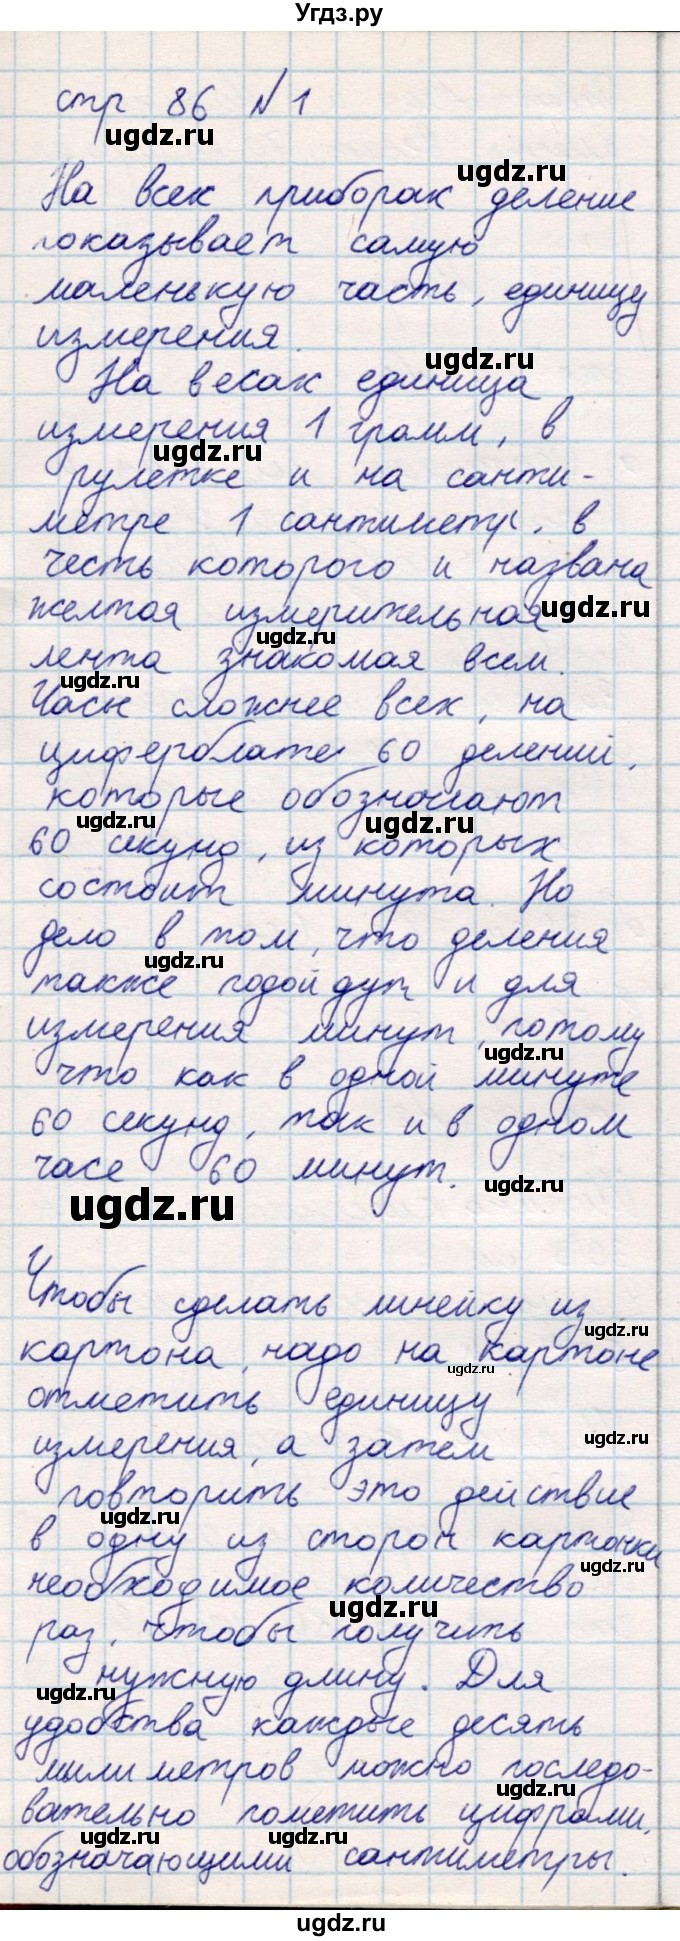 Угдз.ру
стр 86 №1
ugdz.ru
ugdz.ru
На всех приборах деление
показывает самую
маленькую часть, единицу
измерения.
ugdz.ru
На весах единица
измерения 1 грамм, в
ugdz.ru
рулетке и на санти-
метре 1 сантиметр, в
честь которого и названа
желтая измерительная
ugdz.ru
ugdz.ru
лента знакомая всем.
ugdz.ru
Часы сложнее всех, на
циферблате 60 делений,
которые обозначают
ugdz.ru
ugdz.ru
60 секунд, из которых
состоит минута. Но
дело в том, что деления
ugdz.ru
также подойдут и для
измерения минут, потому
ugdz.ru
что как в одной минуте
60 секунд, так и в одном
часе 60 минут.
ugdz.ru
ugdz.ru
Чтобы сделать линейку из
ugdz.ru
картона, надо на картоне
ugdz.ru
отметить единицу
измерения, а затем
ugdz.ru
повторить это действие
ugdz.ru
в одну из сторон картонки
ugdz.ru
необходимое количество
ugdz.ru
раз, чтобы получить
нужную длину. Для
ugdz.ru
удобства каждые десять
миллиметров можно последо-
ugdz.ru
вательно пометить цифрами,
ugdz.ru
ugdz.ru
обозначающими сантиметры.
ugdz.ru